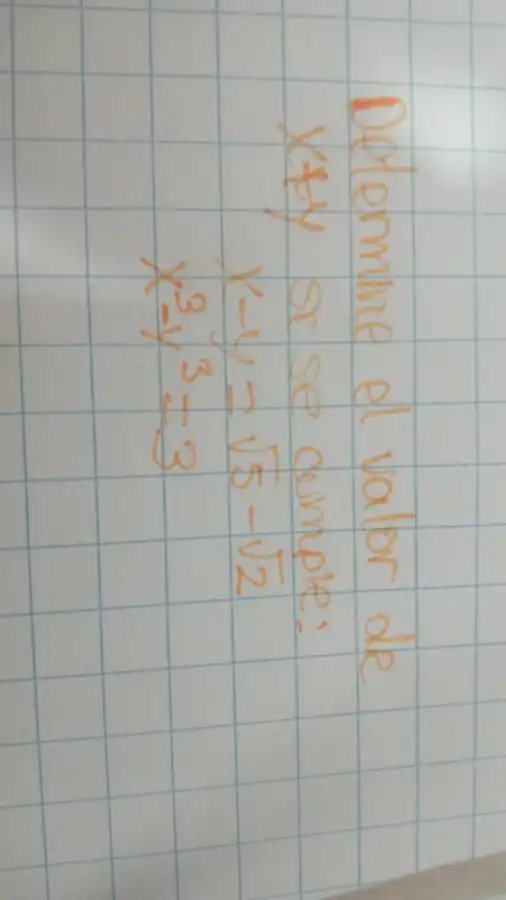 Determine el valor de
x+y si se cumple:
x-y=√5-√2
x³-y³=3